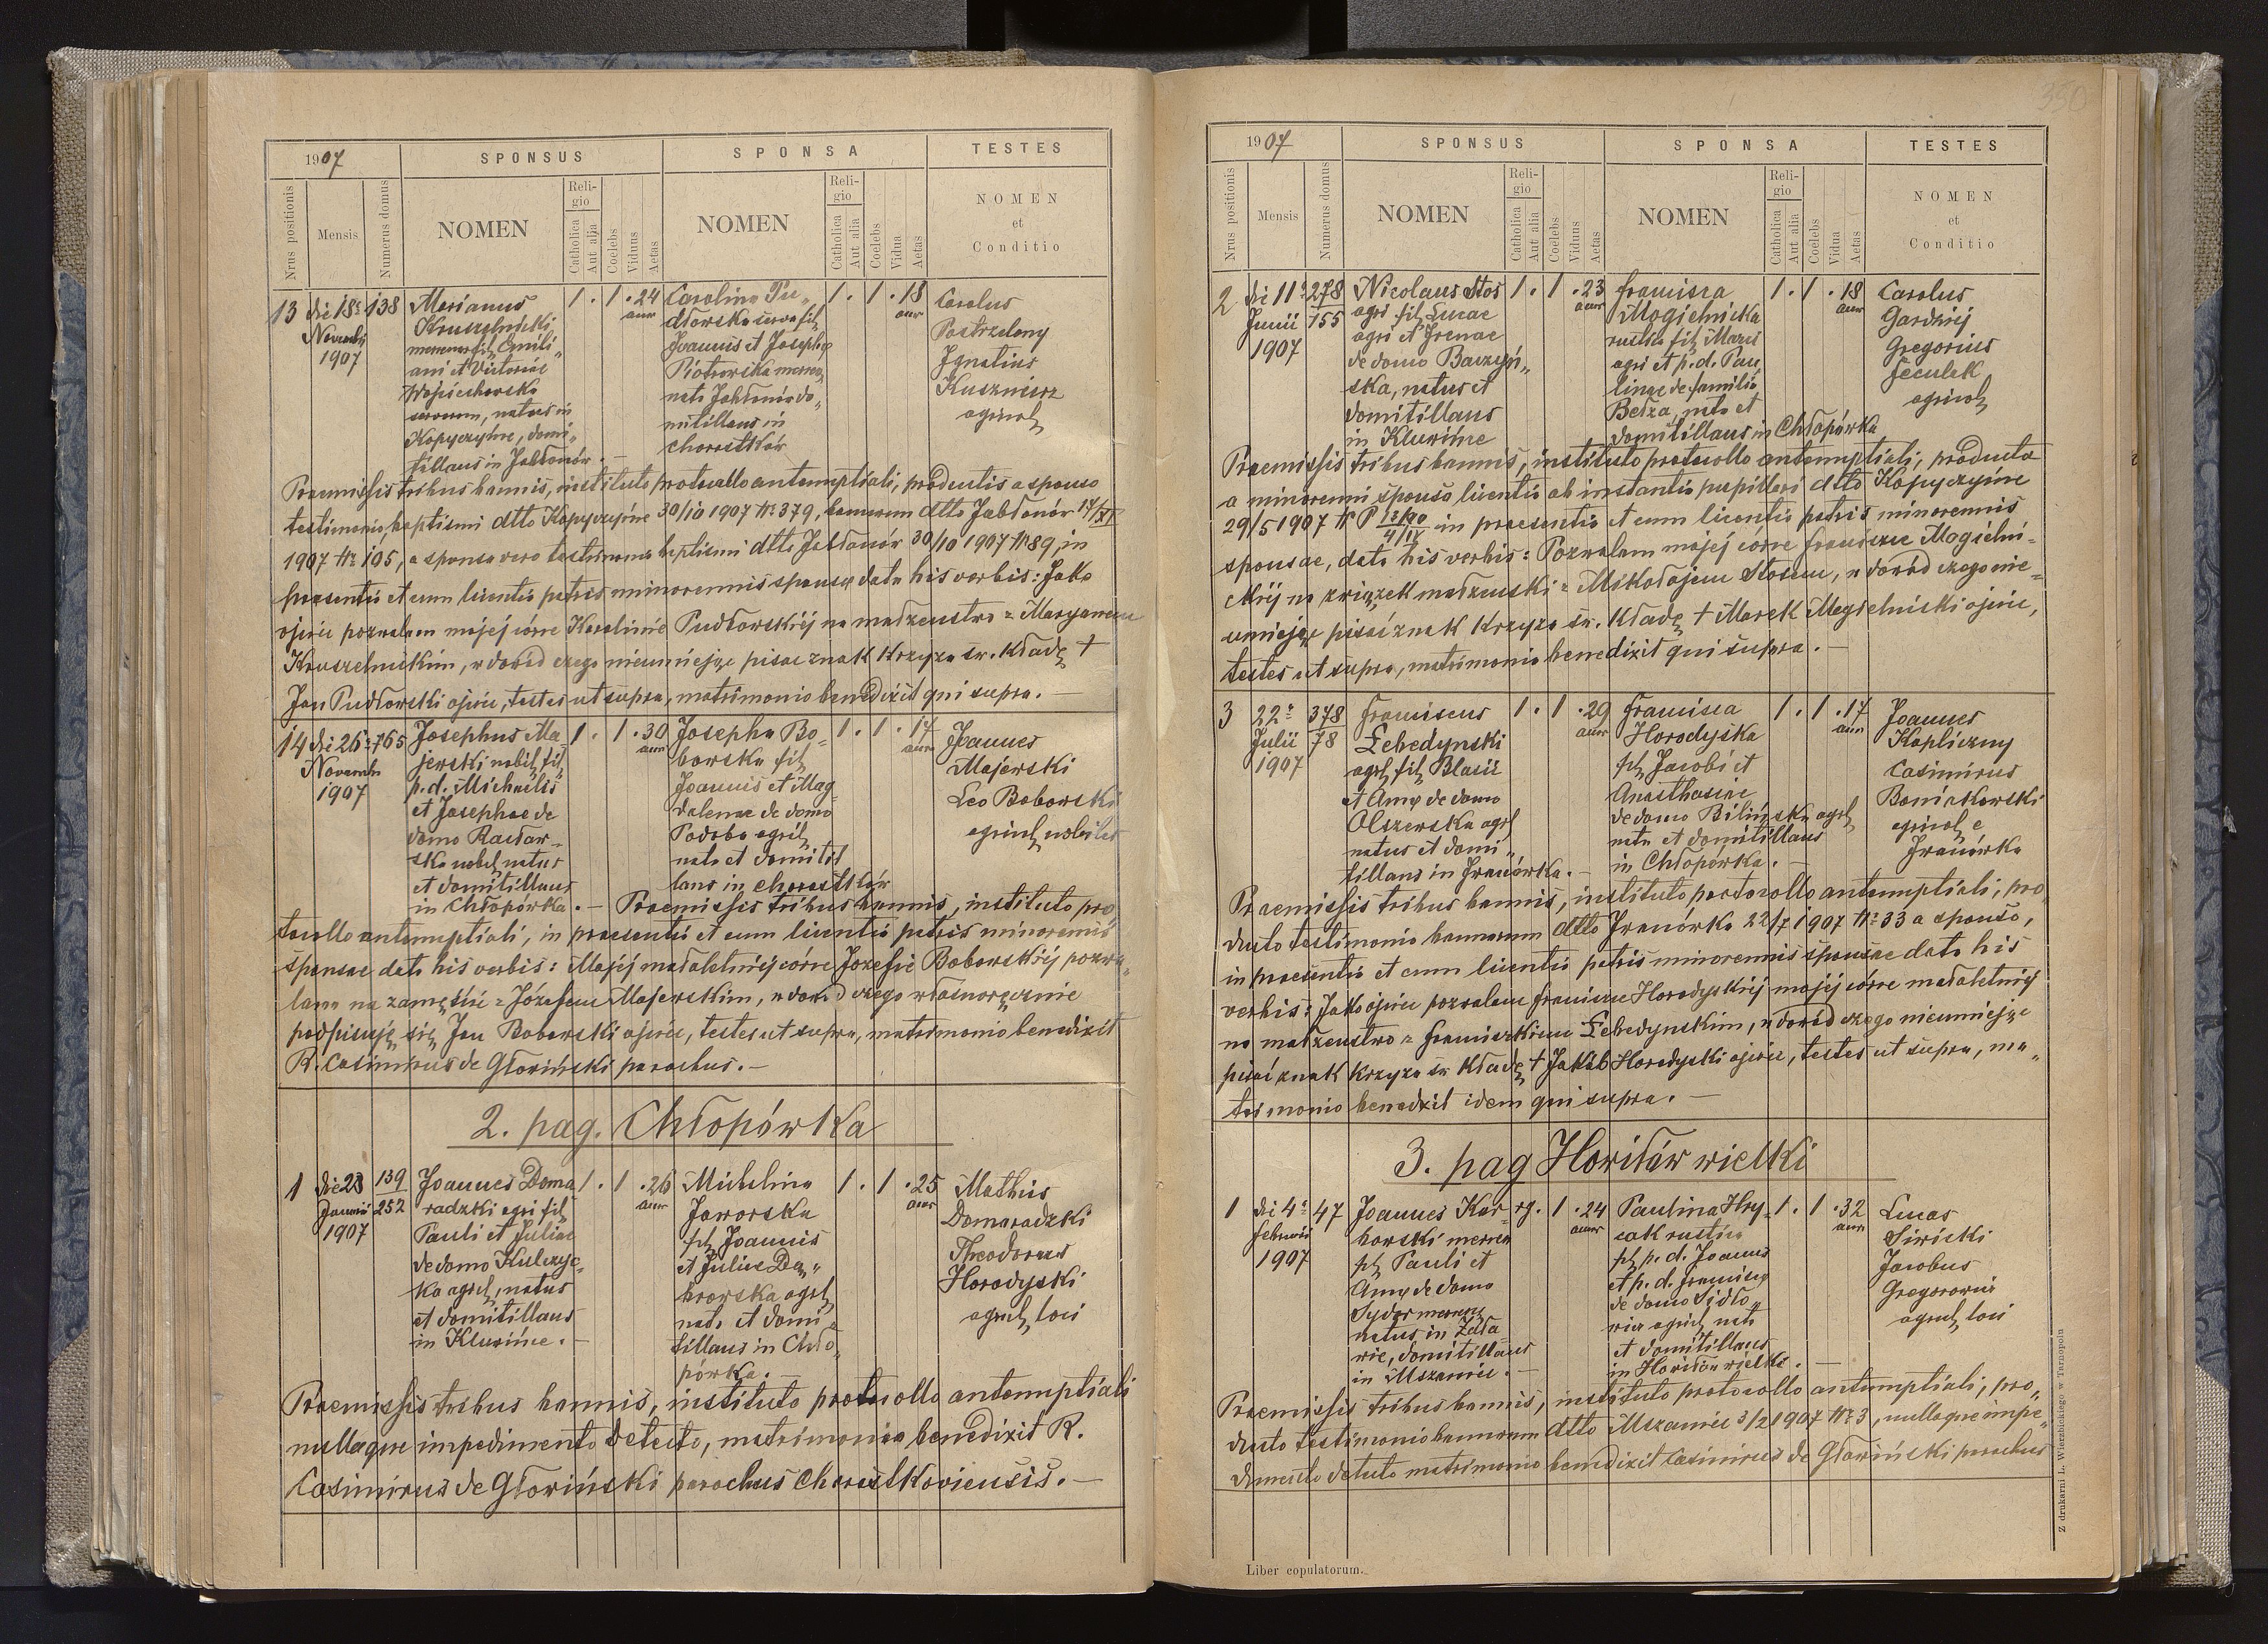 1907
SPONSUS
SPONSA
TESTES
Nrus positionis
Mensis
Numerus domus
NOMEN
Religio
Catholica
Aut alia
Coelebs
Viduus
Aetas
NOMEN
Religio
Catholica
Aut alia
Coelebs
Vidua
Aetas
NOMEN
et
Conditio
13
die 18
Novembr
1907
138
Marianus
Kruszelnicki
fil. Emili„
ani et Victoriae
Wojciechowska
natus in
Kopyczyńce, domi„
tillans in Jabłonów.
1 . 1 . 24
ann
Carolina Pu„
dłowska serva fil
Joannis et Josepha
Piotrowska
nata Jabłonów do„
mitillans in
Chorostków
1 . 1 . 18
ann
Carolus
Postrzelony
Ignatius
Kusznierz
agricol
Praemissis tribus bannis, instituto protocollo antenuptiali, productis a sponso
testimonio baptismi dtto Kopyczyńce 30/10 1907 Nr 379, bannorum dtto Jabłonów 17/XI
1907 Nr 105, a sponsa vero testimonio baptismi dtto Jabłonów 30/10 1907 Nr 89, in
praesentia et cum licentia patris minorennis sponsae data his verbis: Jako
ojciec pozwalam mojej córce Karolinie Pudłowskiej na małżeństwo z Maryanem
Kruszelnickim, w dowód czego nieumiejąc pisać znak krzyża św. kładę †
Jan Pudłowski ojciec, testes ut supra, matrimonio benedixit qui supra. —
14
die 26
Novembr
1907
765
Josephus Ma
jewski nobil fil
p. d. Michaelis
et Josephae de
domo Racław-
ska nobil natus
et domitillans
in Chłopówka. —
1 . 1 . 30
ann
Josepha Bo-
borska fil
Joannis et Mag-
dalenae de domo
Podoba agril
nata et domitil
lans in Chorostków
1 . 1 . 17
ann
Joannes
Majewski
Leo Boborski
agricol nobiles
Praemissis tribus bannis, instituto pro
tocollo antenuptiali, in praesentia et cum licentia patris minorennis
sponsae data his verbis: Mojej małoletniej córce Józefie Boborskiej pozwa„
lam na zamęście z Józefem Majewskim, w dowód czego własnoręcznie
podpisuję się Jan Boborski ojciec, testes ut supra, matrimonio benedixit
R. Casimirus de Głowiński parochus. —
2. pag. Chłopówka
1
die 23
Januarii
1907
139
252
Joannes Doma
radzki agri fil
Pauli et Juliae
de domo Kulczyc-
ka agril, natus
et domitillans
in Kluwińce. —
1 . 1 . 26
ann
Michelina
Jaworska
fil Joannis
et Juliae Dą„
browska agril
nata et domi
tillans in Chło„
pówka. —
1 . 1 . 25
ann
Mathias
Domaradzki
Theodorus
Horodyski
agricol loci
Praemissis tribus bannis, instituto protocollo antenuptiali
nulloque impedimento detecto, matrimonio benedixit R.
Casimirus de Głowiński parochus Chorostkoviensis. —
350
1907
SPONSUS
SPONSA
TESTES
Nrus positionis
Mensis
Numerus domus
NOMEN
Religio
Catholica
Aut alia
Coelebs
Viduus
Aetas
NOMEN
Religio
Catholica
Aut alia
Coelebs
Vidua
Aetas
NOMEN
et
Conditio
2
die 11
Junii
1907
278
155
Nicolaus Stos
agri fil Lucae
agri et Irenae
de domo Baczyń„
ska, natus et
domitillans
in Kluwińce
1 . 1 . 23
ann
Francisca
Mogielnicka
rustica fil Marci
agri et p. d. Pau
linae de familia
Bełza, nata et
domitillans in Chłopówka
1 . 1 . 18
ann
Carolus
Gardziej
Gregorius
Feculak
agricol
Praemissis tribus bannis, instituto protocollo antenuptiali, producta
a minorenni sponso licentia ab instantia pupillari dtto Kopyczyńce
29/5 1907 N P in praesentia et cum licentia patris minorennis
sponsae, data his verbis: Pozwalam mojej córce Franciszce Mogielni-
ckiej na związek małżeński z Mikołajem Stosem, w dowód czego nie=
umiejąc pisać znak krzyża św. kładę † Marek Mogielnicki ojciec,
testes ut supra, matrimonio benedixit qui supra. —
3
22
Julii
1907
378
78
Franciscus
Łebedynski
agril fil Blasii
et Annae de domo
Olszewska agril
natus et domi„
tillans in Iwanówka. —
1 . 1 . 29
ann
Francisca
Horodyska
fil Jacobi et
Anasthasiae
de domo Bilińska agril
nata et domitillans
in Chłopówka. —
1 . 1 . 17
ann
Joannes
Kapliczny
Casimirus
Boniakowski
agricol e
Iwanówka
Praemissis tribus bannis, instituto protocollo antenuptiali, pro„
ducto testimonio bannorum dtto Iwanówka 22/7 1907 Nr 33 a sponso,
in praesentia et cum licentia patris minorennis sponsae data his
verbis: Jako ojciec pozwalam Franciszce Horodyskiej mojej córce małoletniej
na małżeństwo z Franciszkiem Łebedynskim, w dowód czego nieumiejąc
pisać znak krzyża św kładę † Jakób Horodyski ojciec, testes ut supra, ma„
trimonio benedixit idem qui supra. —
3. pag Howiłów wielki
1
die 4
Februarii
1907
47
Joannes Kar-
borski mercen
fil Pauli et
Annae de domo
Sydor mercen
natus in Zela
wie, domitillans
in Mszaniec. —
rg. 1 . 24
ann
Paulina Hry-
cak rustica
fil p. d. Joannis
et p. d. Francisca
de domo Sidło„
wicz agricol nata
et domitillans
in Howiłów wielki. —
1 . 1 . 32
ann
Lucas
Siwicki
Jacobus
Gregorowicz
agricol loci
Praemissis tribus bannis, instituto protocollo antenuptiali, pro„
ducto testimonio bannorum dtto Mszaniec 3/2 1907 Nr 3, nulloque impe„
dimento detecto matrimonio benedixit Casimirus de Głowiński parochus
Liber copulatorum.
Z drukarni L. Wierzbickiego w Tarnopolu